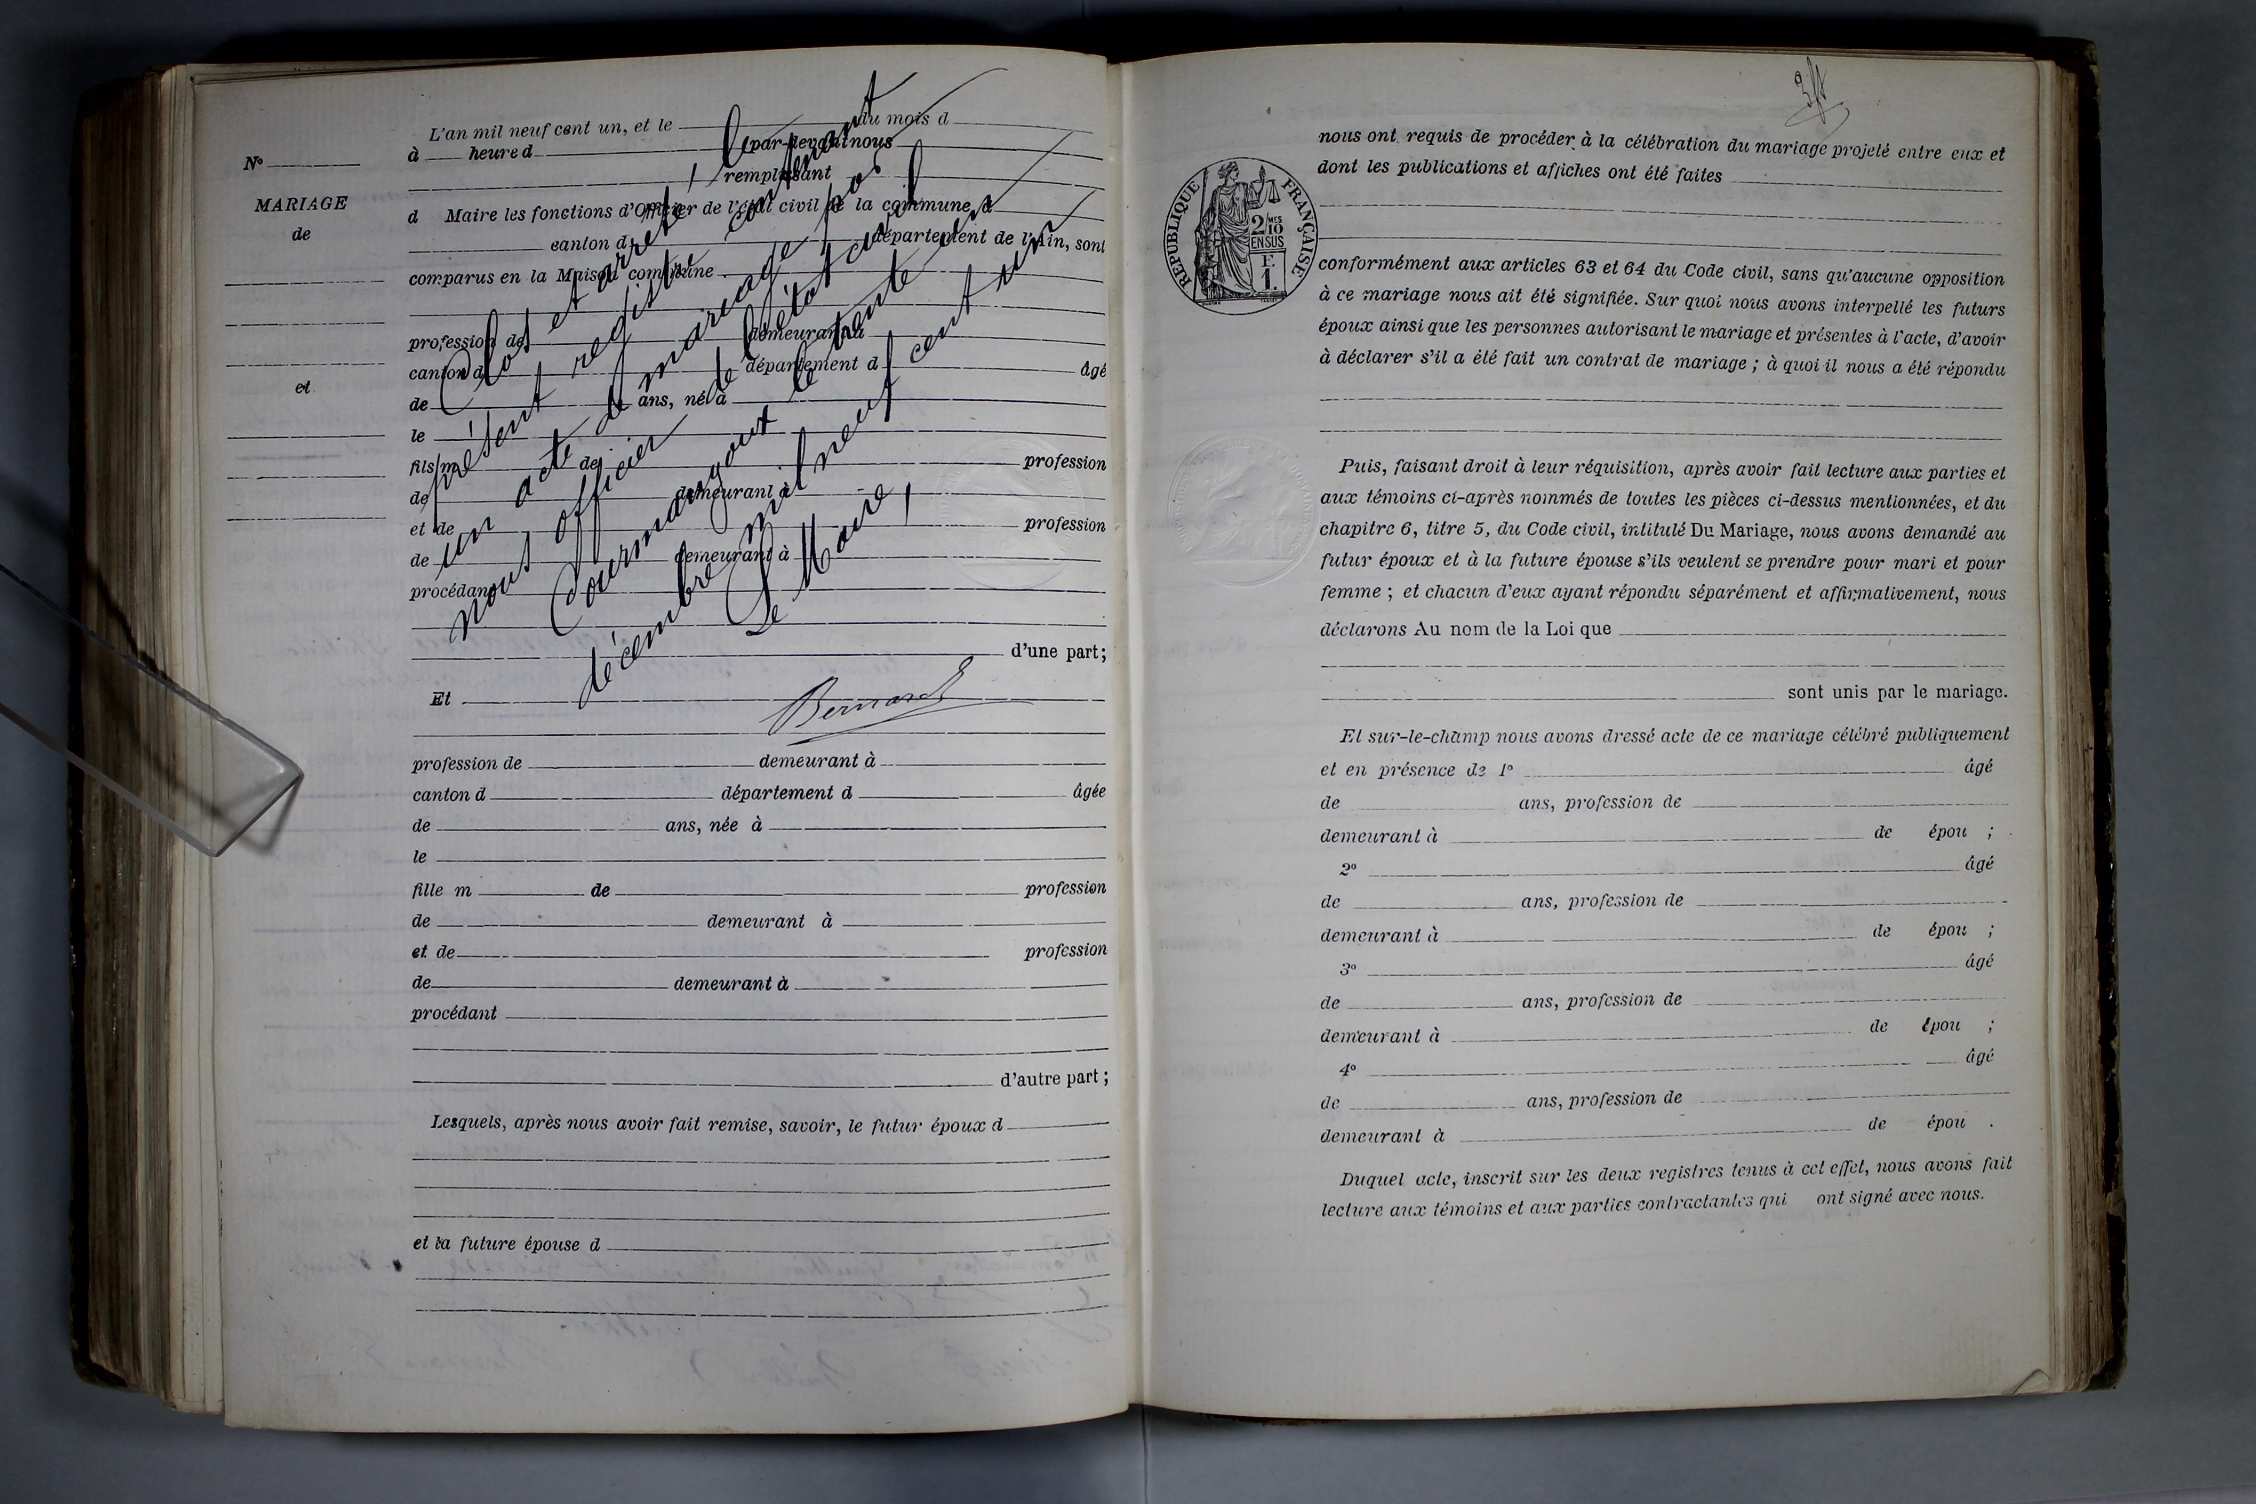 L'an mil neuf cent un, et le du mois d
à heure d par-devant nous
remplissant
d Maire les fonctions d'Officier de l'état civil de la commune d
canton d département de l'Ain, sont
comparus en la Maison commune
profession de demeurant à
canton d département d âgé
de ans, né à
le
fils m de profession
de demeurant à
et de profession
de demeurant à
procédant
d'une part;
Et
profession de demeurant à
canton d département d âgée
de ans, née à
le
fille m de profession
de demeurant à
et de profession
de demeurant à
procédant
d'autre part;
Lesquels, après nous avoir fait remise, savoir, le futur époux d
et la future épouse d
No
MARIAGE
de
et
Clos et arrêté le
présent registre contenant
un acte de mariage par
nous officier de l'état civil
le trente un
décembre mil neuf cent un
Le Maire,
Bernard
nous ont requis de procéder à la célébration du mariage projeté entre eux et
dont les publications et affiches ont été faites
RÉPUBLIQUE FRANÇAISE
2 MES
10
EN SUS
F.
1.
conformément aux articles 63 et 64 du Code civil, sans qu'aucune opposition
à ce mariage nous ait été signifiée. Sur quoi nous avons interpellé les futurs
époux ainsi que les personnes autorisant le mariage et présentes à l'acte, d'avoir
à déclarer s'il a été fait un contrat de mariage ; à quoi il nous a été répondu
Puis, faisant droit à leur réquisition, après avoir fait lecture aux parties et
aux témoins ci-après nommés de toutes les pièces ci-dessus mentionnées, et du
chapitre 6, titre 5, du Code civil, intitulé Du Mariage, nous avons demandé au
futur époux et à la future épouse s'ils veulent se prendre pour mari et pour
femme ; et chacun d'eux ayant répondu séparément et affirmativement, nous
déclarons Au nom de la Loi que
sont unis par le mariage.
Et sur-le-champ nous avons dressé acte de ce mariage célébré publiquement
et en présence de 1o âgé
de ans, profession de
demeurant à de épou ;
2o âgé
de ans, profession de
demeurant à de épou ;
3o âgé
de ans, profession de
demeurant à de épou ;
4o âgé
de ans, profession de
demeurant à de épou .
Duquel acte, inscrit sur les deux registres tenus à cet effet, nous avons fait
lecture aux témoins et aux parties contractantes qui ont signé avec nous.